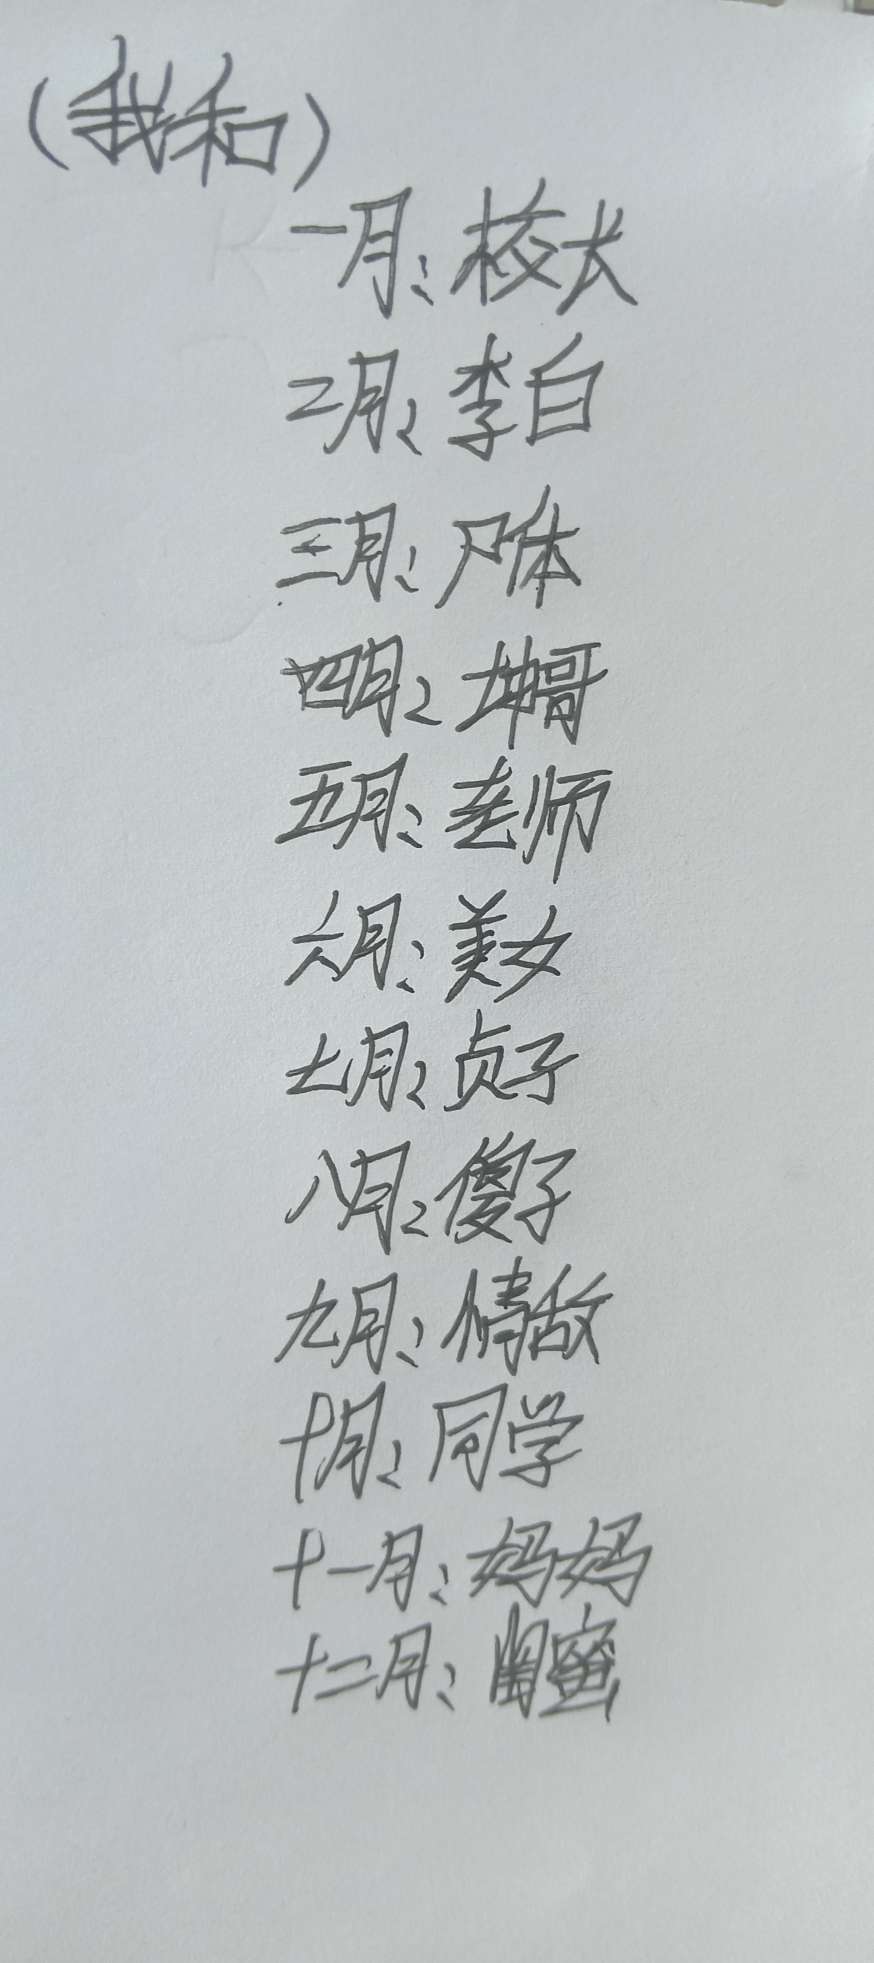 (我和)
一月:校长
二月:李白
三月:尸体
四月:坤哥
五月:老师
六月:美女
七月:贞子
八月:傻子
九月:情敌
十月:同学
十一月:妈妈
十二月:闺蜜